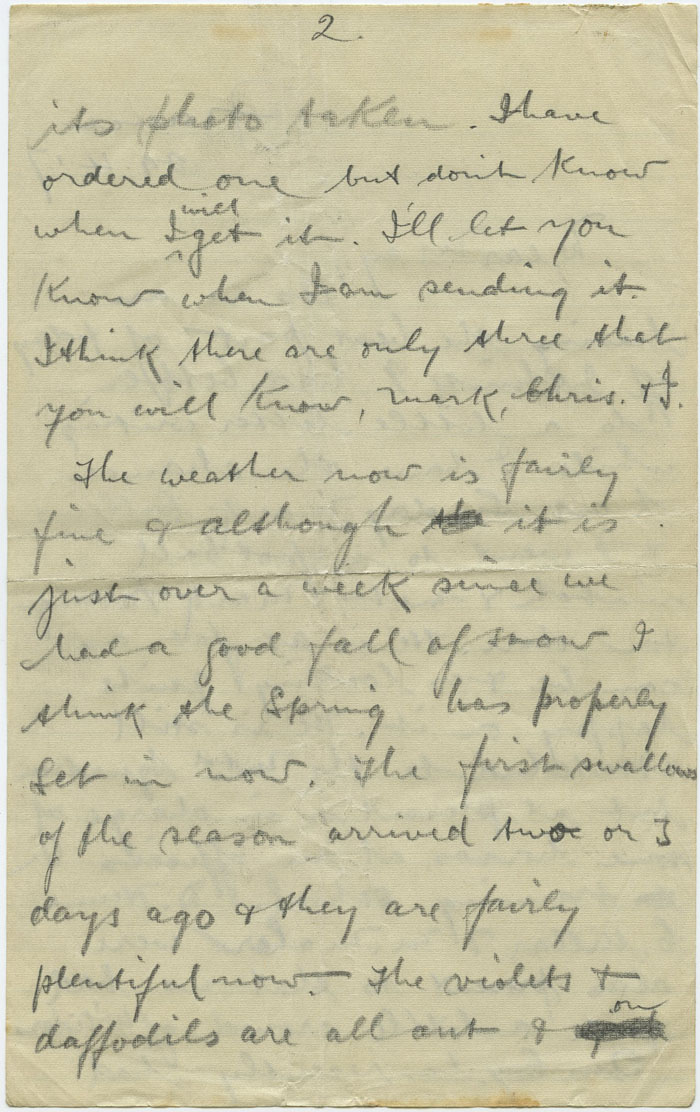 2.
its photo taken. I have
ordered one but don't know
when I will get it. I'll let you
know when I am sending it.
I think there are only three that
you will know, Mark, Chris. & I.
The weather now is fairly
fine & although it is
just over a week since we
had a good fall of snow I
think the Spring has properly
set in now. The first swallows
of the season arrived two or 3
days ago & they are fairly
plentiful now. The violets &
daffodils are all out & on